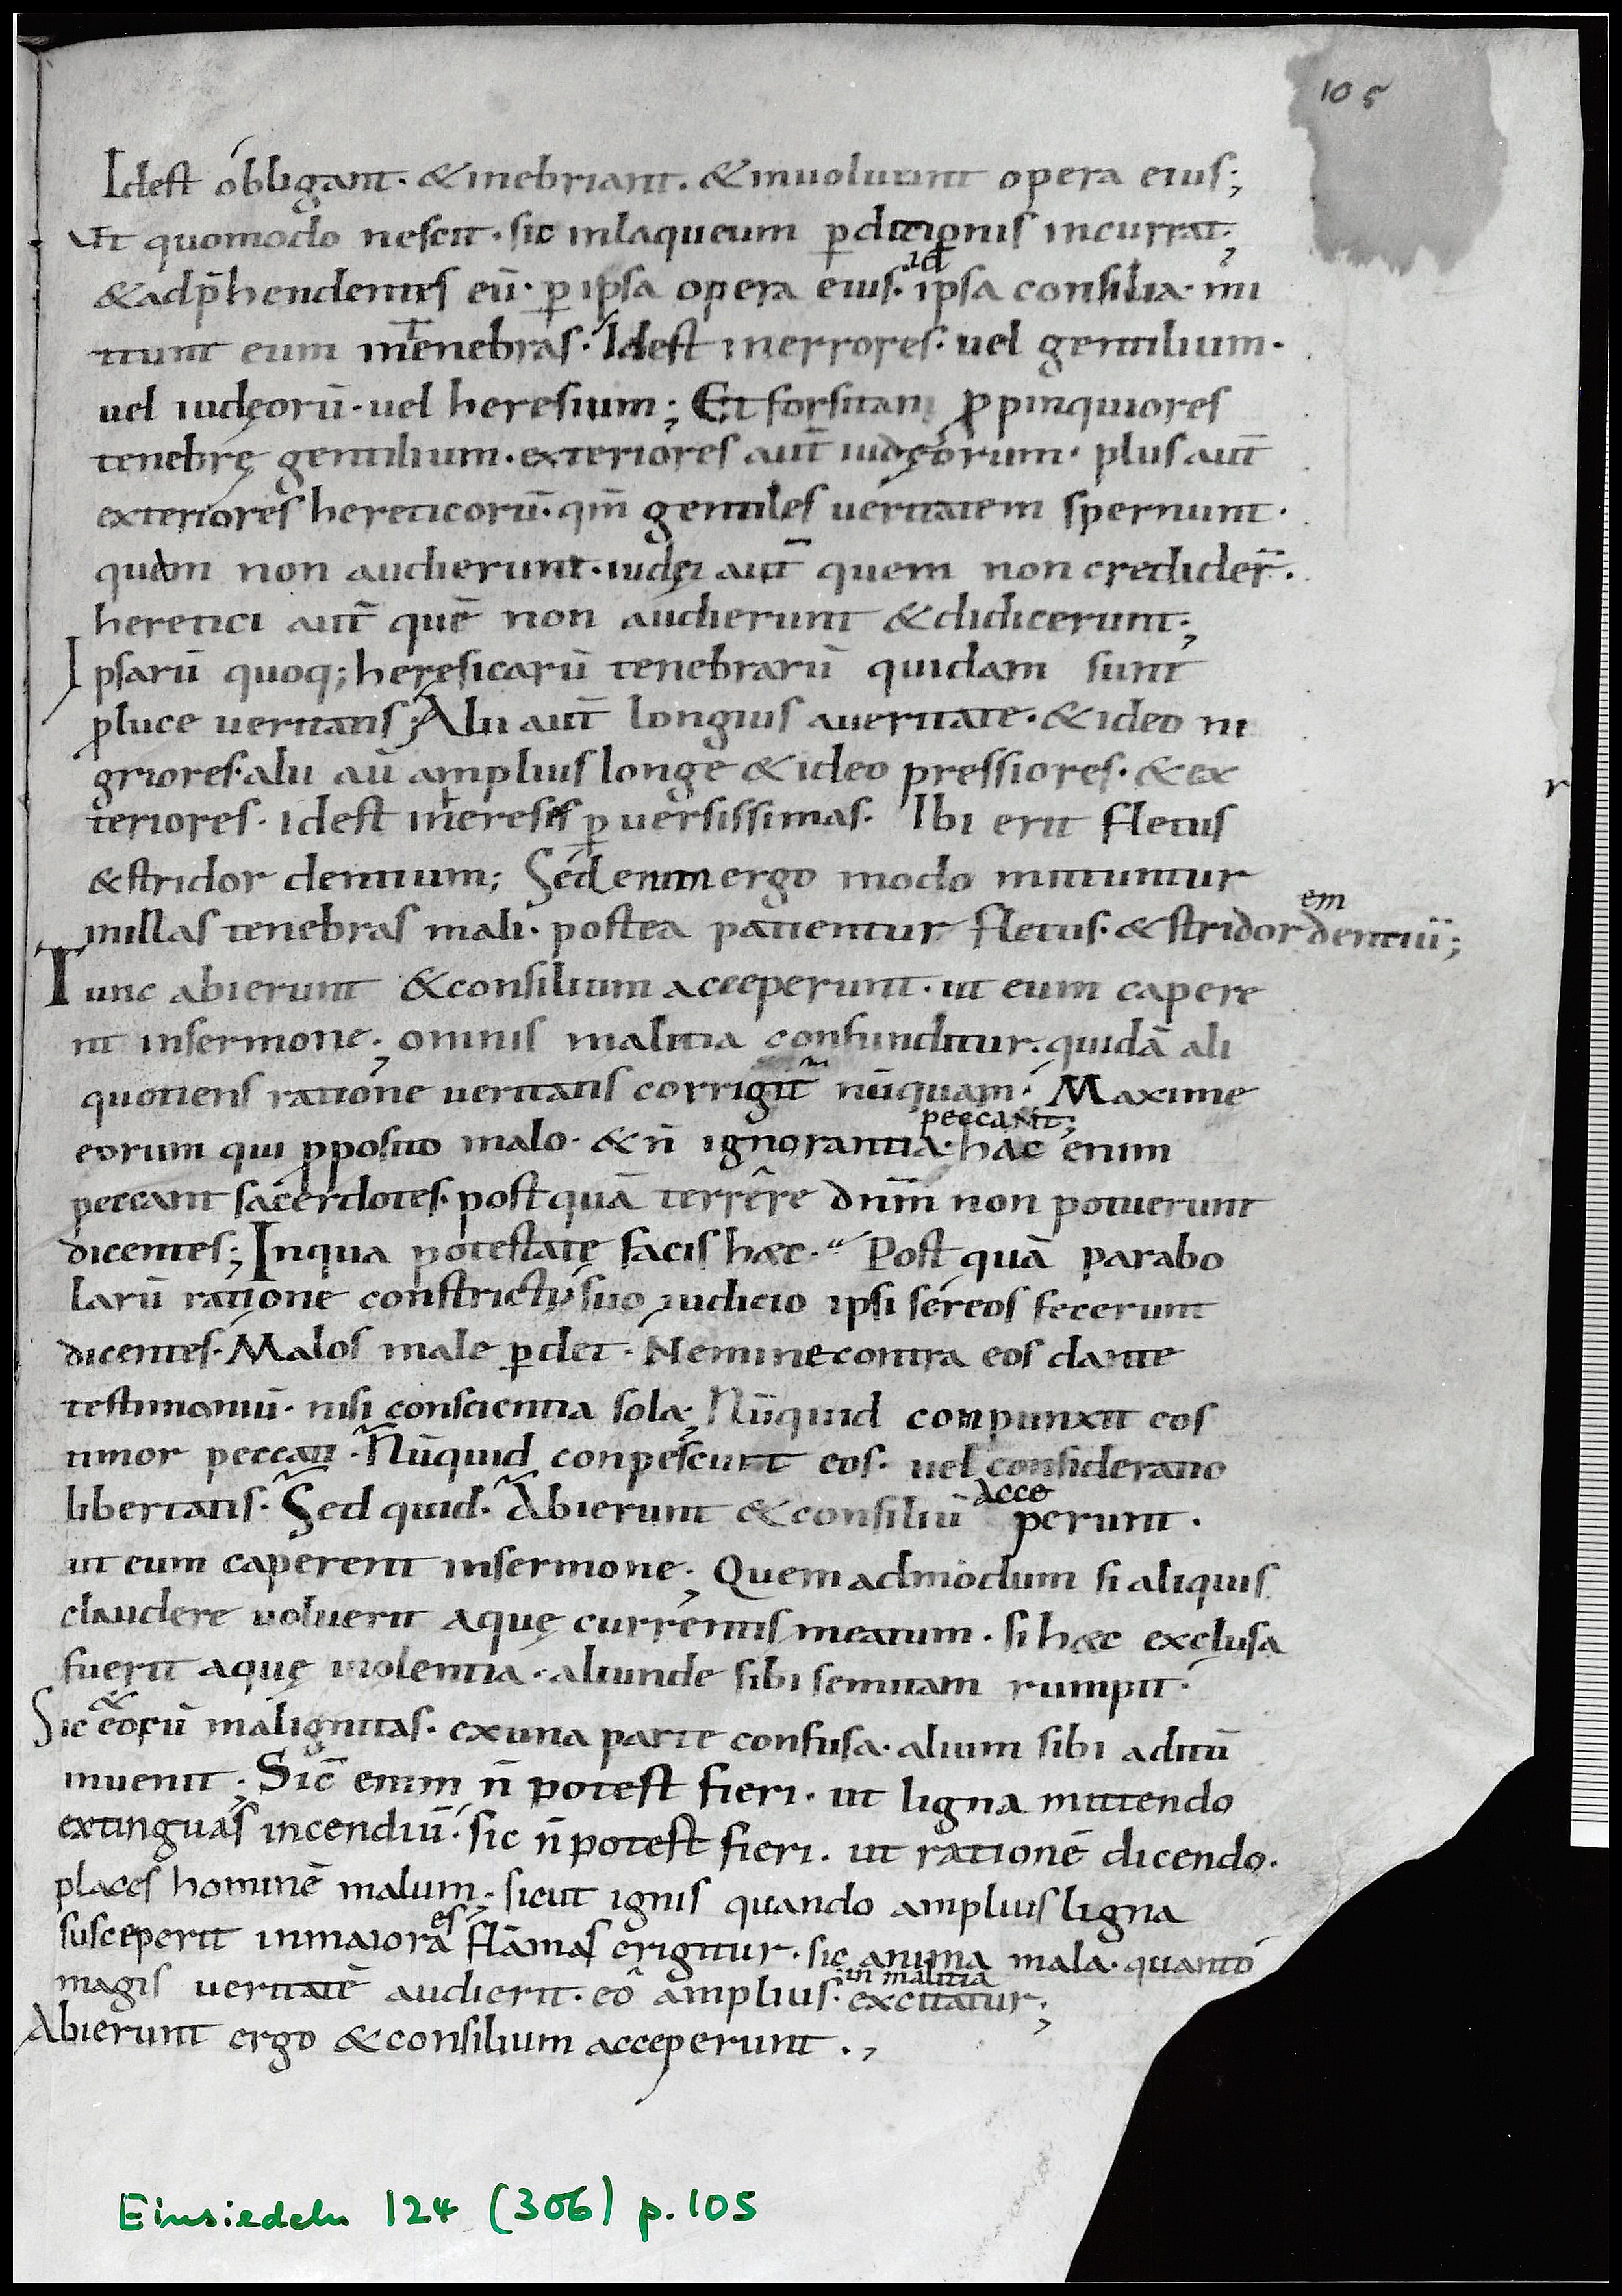 105
Idest obligant · & inebriant · & inuoluunt opera eius ;
Ut quomodo nescit · sic inlaqueum p̱ditionis incurrat ;
& adp̄hendentes eū · p̱ ipsa opera eius · id ipsa consilia · mi
ttunt eum intenebras · Idest inerrores · uel gentilium ·
uel iudęorū · uel heresium ; Et forsitan ppinquiores
tenebrę gentilium · exteriores aut̄ iudęorum · plus aut̄
exteriores hereticorū · qm̄ gentiles ueritatem spernunt ·
quam non audierunt · iudęi aut̄ quem non credider̄ ·
heretici aut̄ quē non audierunt & didicerunt ;
Ipsarū quoq; heresicarū tenebrarū quidam sunt
p luce ueritatis ; Alii aut̄ longius aueritate · & ideo ni
griores · alii aū amplius longe & ideo pressiores · & ex
teriores · idest inhereses p̱uersissimas · Ibi erit fletus
& stridor dentium ; Sed enim ergo modo mittuntur
inillas tenebras mali · postea patientur fletus · & stridorem dentiū ;
Tunc abierunt & consilium acceperunt · ut eum capere
nt insermone ; omnis malitia confunditur · quidā ali
quotiens ratione ueritatis corrigit̄ nūquam · Maxime
eorum qui pposito malo · & n̄ ignorantia · peccant ; hac enim
peccant sacerdotes · postquā terrere dnm̄ non potuerunt
dicentes ; Inqua potestate facis haec · Post quā parabo
larū ratione constricti suo iudicio ipsi sereos fecerunt
dicentes · Malos male p̱det · Nemine contra eos dante
testimoniū · nisi conscientia sola ; Nūquid conpunxit eos
timor peccati · Nūquid conpescunt eos · uel consideratio
libertatis · Sed quid · Abierunt & consiliū acceperunt ·
ut eum caperent insermone ; Quem admodum si aliquis
claudere uoluerit aquę currentis meatum · si haec exclusa
fuerit aquę uiolentia · aliunde sibi semitam rumpit ·
Sic & eorū malignitas · exuna parte confusa · alium sibi aditū
inuenit ; Sic̄ enim n̄ potest fieri · ut ligna mittendo
extinguas incendiū · sic n̄ potest fieri · ut rationē dicendo ·
places hominē malum ; sicut ignis quando amplius ligna
susceperit inmaiores flāmas erigitur · sic anima mala · quanto
magis ueritatē audierit · eo amplius · in malitia excitatur ;
Abierunt ergo & consilium acceperunt · ,
Einsiedeln 124 (306) p. 105